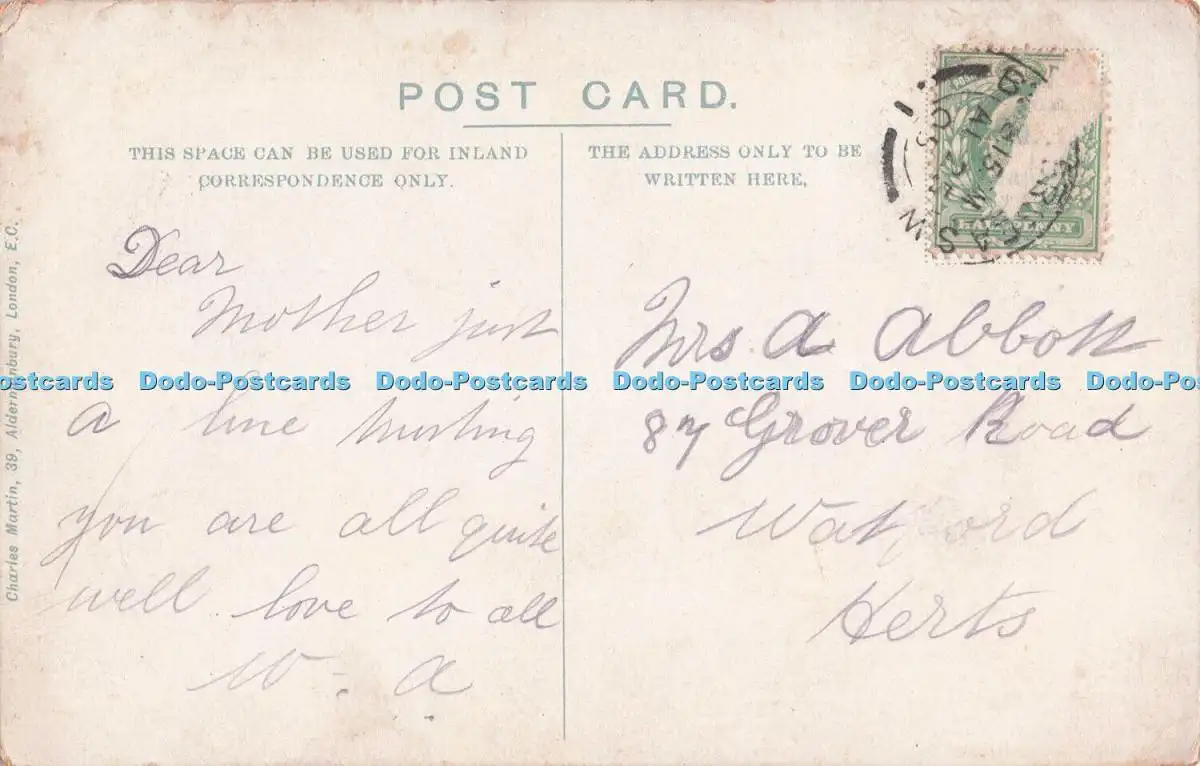 POST CARD.
THIS SPACE CAN BE USED FOR INLAND
CORRESPONDENCE ONLY.
THE ADDRESS ONLY TO BE
WRITTEN HERE,
Dear
Mother just
a line trusting
you are all quite
well love to all
W. A
Mrs. A Abbott
87 Grover Road
Watford
Herts
HALF PENNY
Charles Martin, 39, Aldermanbury, London, E.C.
Dodo-Postcards Dodo-Postcards Dodo-Postcards Dodo-Postcards Dodo-Postcards